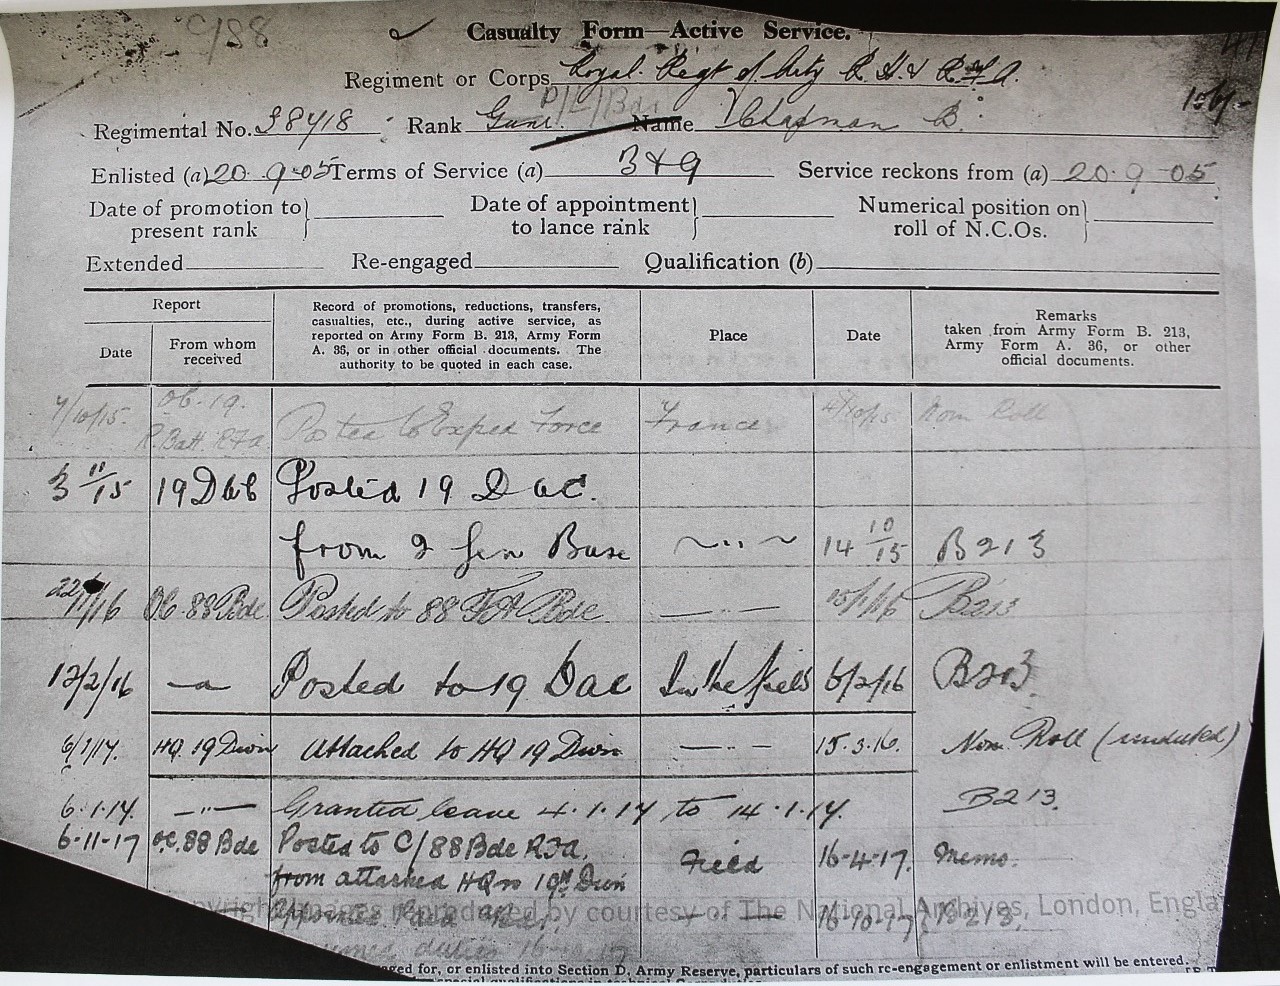 C/88
Casualty Form—Active Service.
Regiment or Corps Royal Regt of Arty R.H. & R.F.A.
P/L/Bdr
Regimental No. 38418 Rank Gunr. Name Chapman B.
Enlisted (a) 20.9.05 Terms of Service (a) 3 & 9 Service reckons from (a) 20.9.05
Date of promotion to present rank Date of appointment to lance rank Numerical position on roll of N.C.Os.
Extended Re-engaged Qualification (b)
Report
Date From whom received
Record of promotions, reductions, transfers,
casualties, etc., during active service, as
reported on Army Form B. 213, Army Form
A. 36, or in other official documents. The
authority to be quoted in each case.
Place
Date
Remarks
taken from Army Form B. 213,
Army Form A. 36, or other
official documents.
7/10/15 Posted to Exped Force France Nom Roll
R.Batt. RFA
3 11/15 19 DAC Posted 19 DAC.
from 2 Gen Base 14 10/15 B213
22/1/16 OC. 88 Bde. Posted to 88 FA Bde. —..— B213
12/2/16 Posted to 19 Dac In the field 6/2/16 B213
6/1/17. HQ. 19 Divn Attached to HQ 19 Divn —..— 15.3.16. Nom. Roll (undated)
6.1.17. —"— Granted leave 4.1.17 to 14.1.17. B213.
6-11-17 OC. 88 Bde Posted to C/88 Bde RFA. Field 16-4-17. Memo.
from attached HQrs 19th Divn
Appointed Paid —..— 16-10-17 B213.
Copyright images reproduced by courtesy of The National Archives, London, Engla
for, or enlisted into Section D, Army Reserve, particulars of such re-engagement or enlistment will be entered.